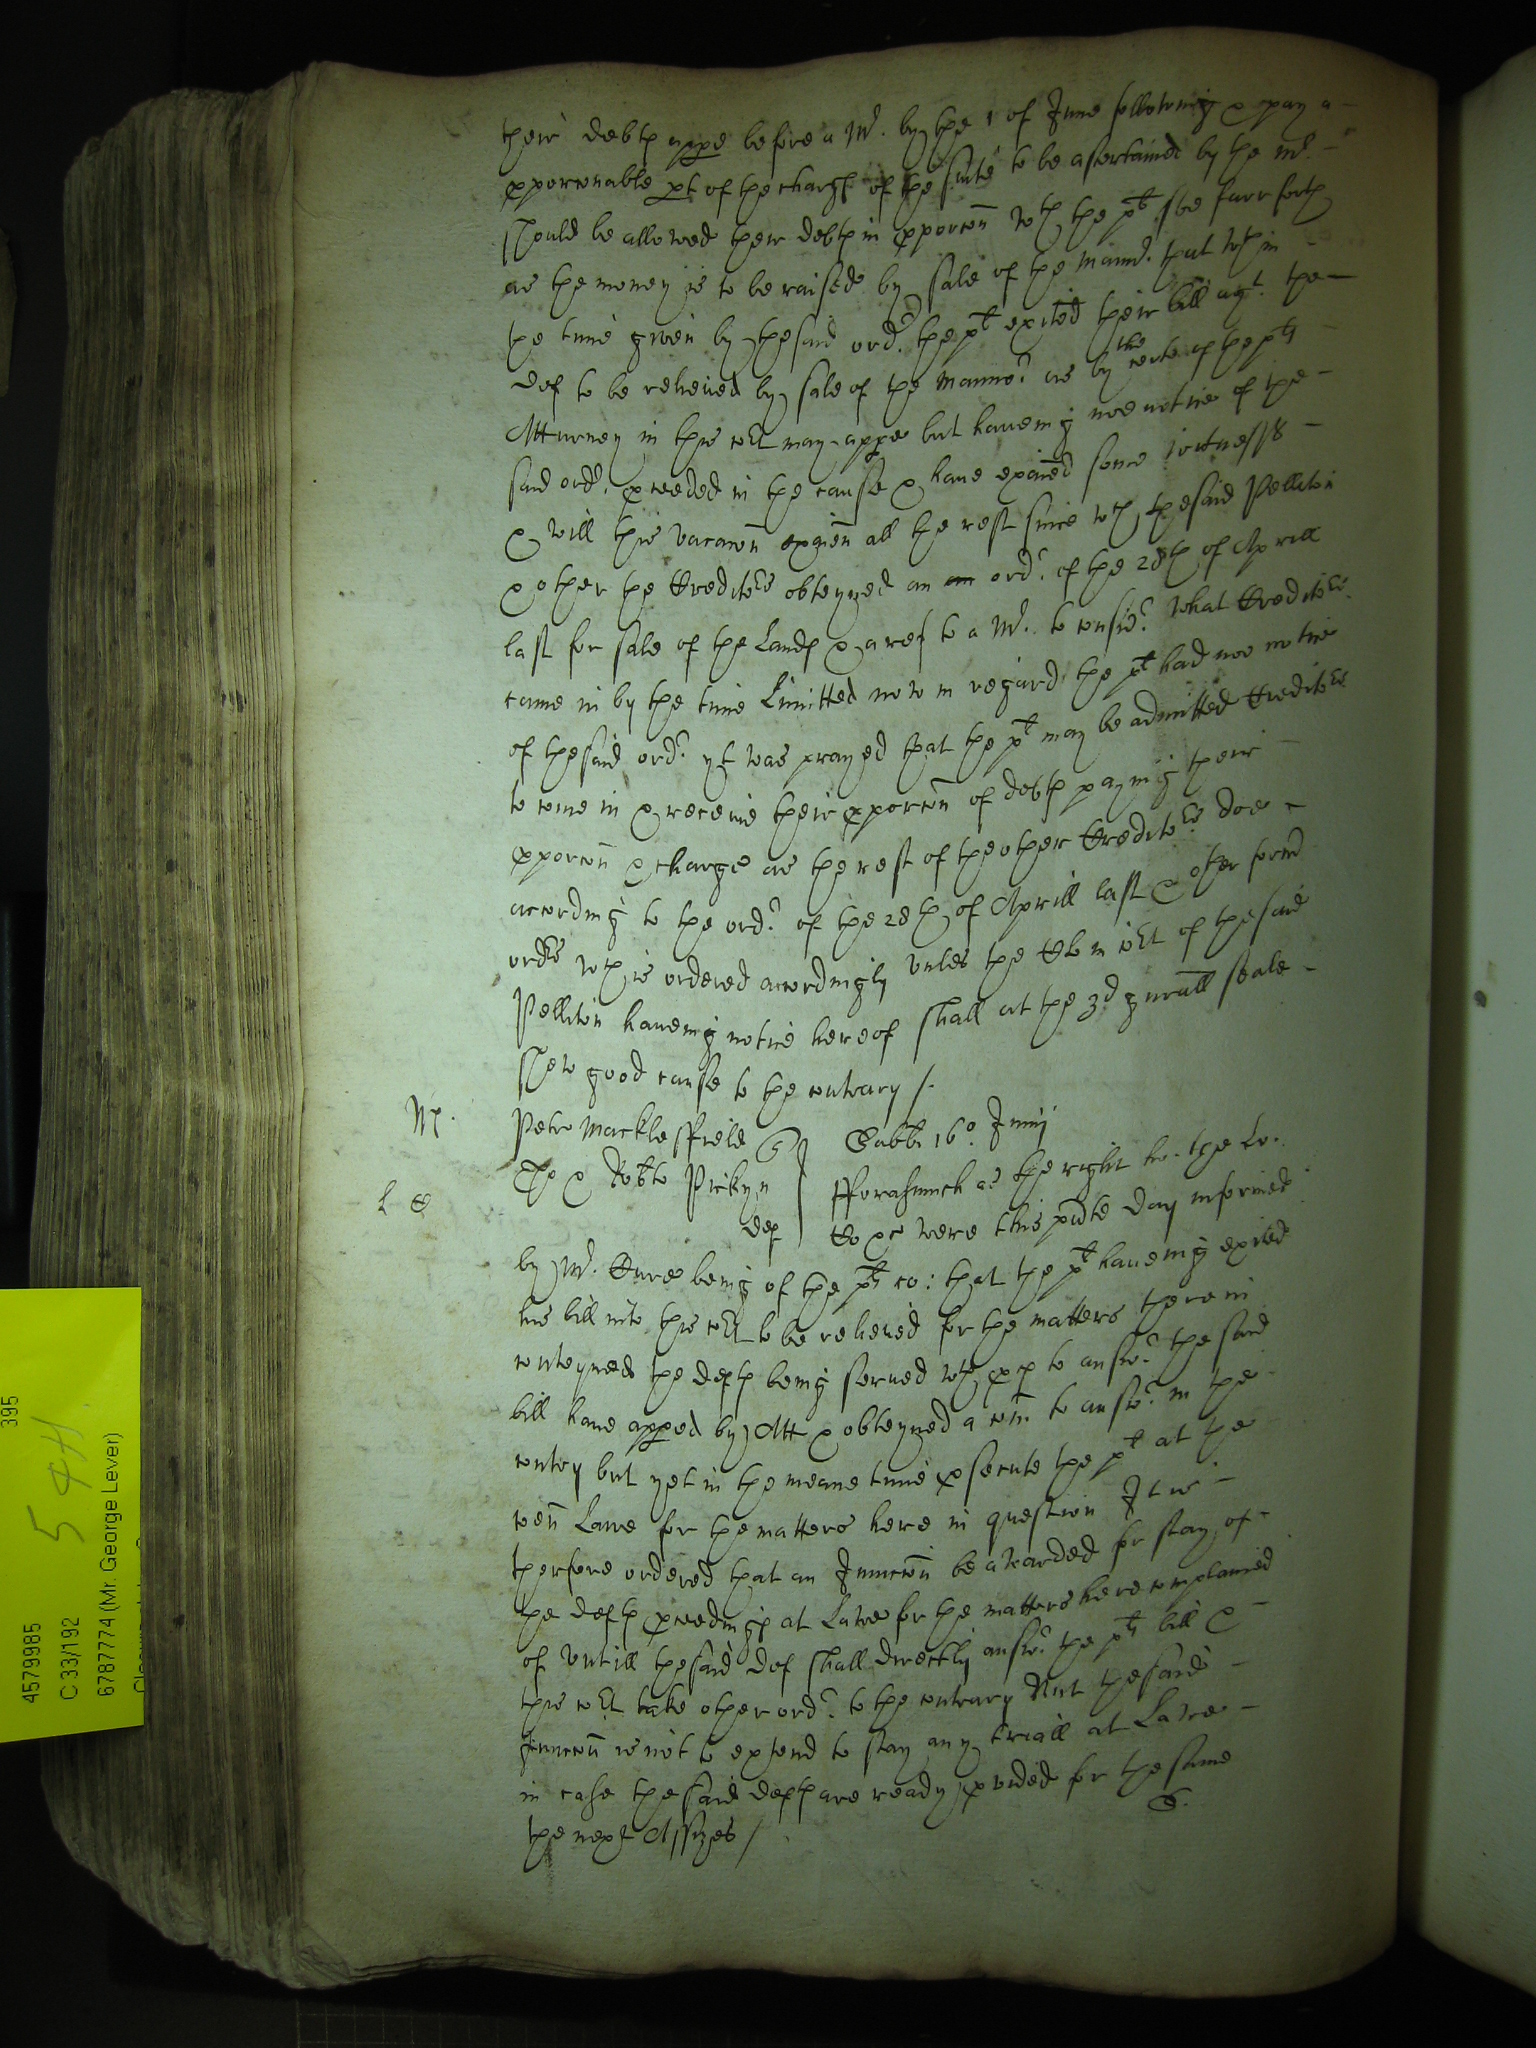 their debts appe before a Mr. by the 1 of June following & pay a
pporconable pt of the charge of the suite to be ascertained by the Mr.
should be allowed their debts in pporcon wth the plt soe farr forth
as the money is to be raised by sale of the Mannor. that wthin
the time given by the said ordr. the plt exited their bill agt. the
def to be releived by sale of the Mannor. as by the certe of the plts
Atturney in this cort may appe but haveing noe notice of the
said ordr. pceeded in the cause & have exaied some witnesses
& will this vacacon exaien all the rest since wch the said Pelliton
& other the Creditors obteyned an ordr. of the 28th of Aprill
last for sale of the Lands & a ref to a Mr. to considr. what Creditors
came in by the time Limitted now in regard the plt had noe notice
of the said ordr. yt was prayed that the plt may be admitted Creditors
to come in & receive their pporcon of debts paying their
pporcon & charge as the rest of the other Creditors doe
according to the ordr. of the 28th of Aprill last & other formr
ordrs wch is ordered accordingly unles the Clr in cort of the said
Pelliton haveing notice hereof shall at the 3d gnrall seale
shew good cause to the contrary /.
Petr Macklesffeild
Sabbi 16o. Junij
Tho & Robto Pickyn
def
fforasmuch as the right ho. the Lo.
Co &c were this pnte day informed
by Mr. being of the plts co: that the plt haveing exited
his bill into this cort to be releived for the matters therein
conteyned the defts being served wth pces to answr. the said
bill have apped by Att & obteyned a com to answr. in the
contry but yet in the meane time psecute the plt at the
comon Lawe for the matters here in question It is
therfore ordered that an Iniunccon be awarded for stay of
the defts pceedings at Lawe for the matters here complained
of untill the said def shall directly answr. the plts bill &
this cort take other ordr. to the contrary But the said
Iniunccon is not to extend to stay any triall at Lawe
in case the said defts are ready pvided for the same
the next Assizes /
395
5 4H
4579985
C 33/192
6787774 (Mr. George Lever)